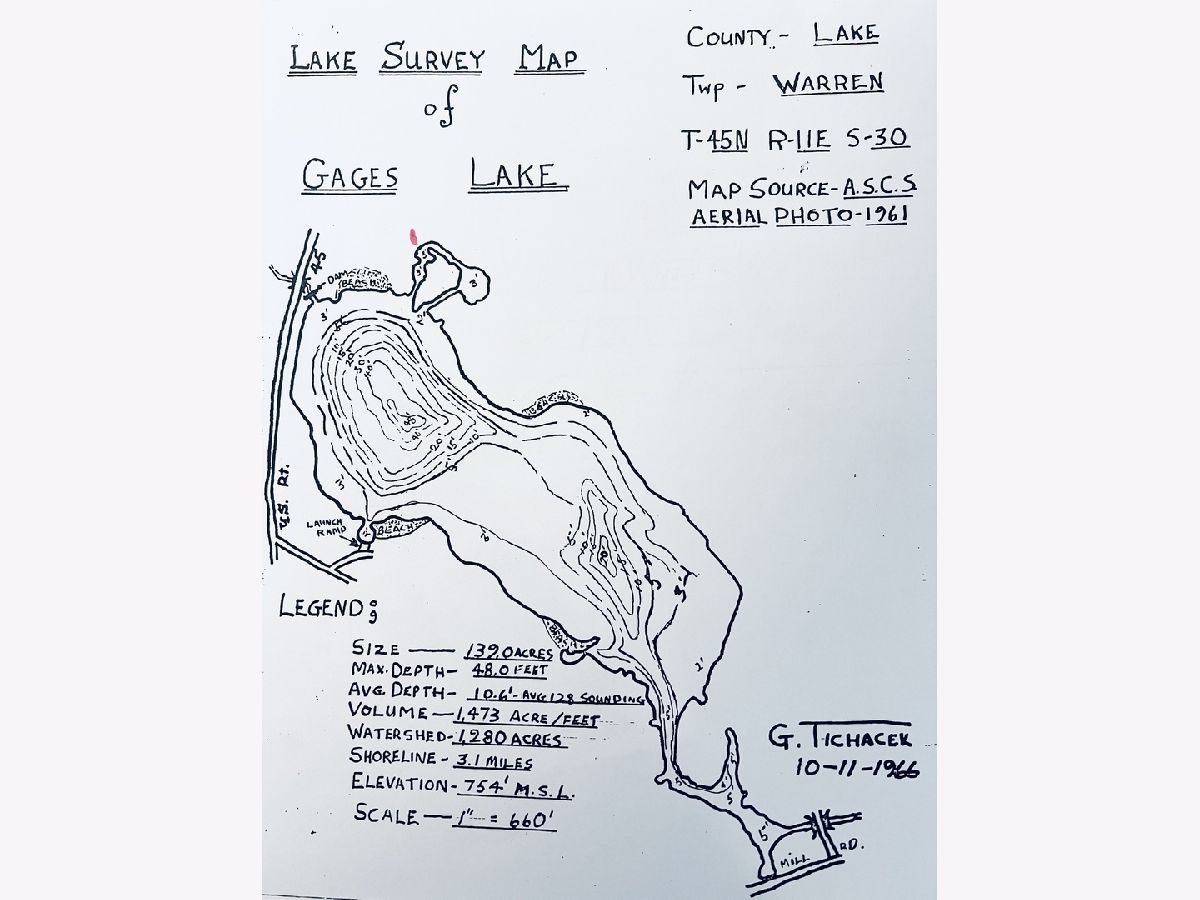 LAKE SURVEY MAP
of
GAGES LAKE
COUNTY.- LAKE
Twp - WARREN
T-45N R-11E S-30
MAP SOURCE- A.S.C.S.
AERIAL PHOTO-1961
45
DAM
BEACH
3'
2'
3'
10
15
20
45
40
20
15
10
5
BEACH
2'
3'
U.S. Rt.
LAUNCH
RAMP
BEACH
20
5
2'
LEGEND:
SIZE — 139.0 ACRES
MAX. DEPTH- 48.0 FEET
AVG. DEPTH- 10.6'- AVG 128 SOUNDING
VOLUME — 1,473 ACRE/FEET
WATERSHED- 1,280 ACRES
SHORELINE - 3.1 MILES
ELEVATION- 754' M.S.L.
SCALE — 1" = 660'
G. TICHACEK
10-11-1966
5
5'
MILL RD.